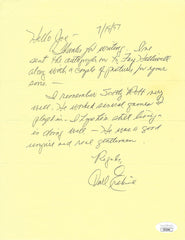 Hello Joe - 7/19/97
Thanks for writing. I've
sent the autographs on to Fay
along with a couple of pictures for your
some -
I remember Scotty Robb very
well. He worked several games I
played in - I that he's still living -
is doing well - He was a good
umpire and real gentleman.
Regards,
Carl Erskine
JSA